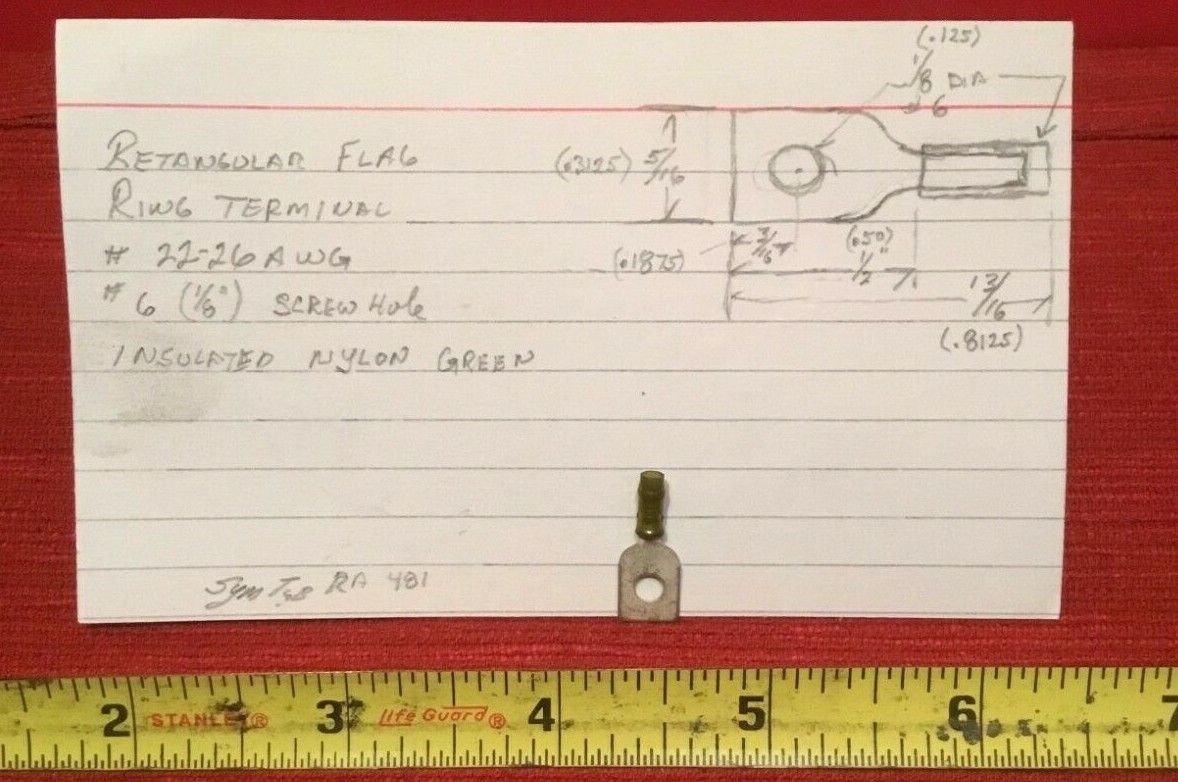 (.125)
1/8 DIA
#6
RETANGULAR FLAG
(.3125) 5/16
RING TERMINAL
# 22-26 AWG
(.1875) 3/16
(.50) 1/2"
# 6 (1/8") SCREW Hole
13/16
(.8125)
INSULATED NYLON GREEN
RA 481
2 STANLEY® 3 Life Guard® 4 5 6 7